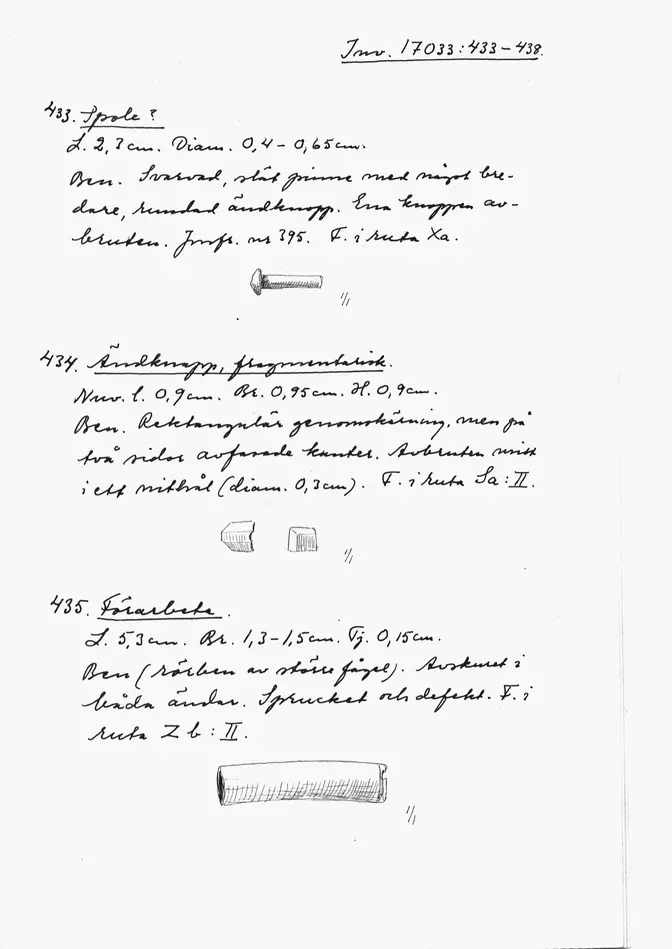 Inv. 17033:433–438.
433. Spole?
L. 2,3 cm. Diam. 0,4–0,65 cm.
Ben. Svarvad, slät pinne med något bre-
dare, rundad ändknopp. Ena knoppen av-
bruten. Jmfr. nr 395. F. i ruta Xa.
1/1
434. Ändknapp, fragmentarisk.
Nuv. l. 0,9 cm. Br. 0,95 cm. H. 0,9 cm.
Ben. Rektangulär genomskärning, men på
två sidor avfasade kanter. Avbruten mitt
i ett nithål (diam. 0,3 cm). F. i ruta Sa:II.
1/1
435. Förarbete.
L. 5,3 cm. Br. 1,3–1,5 cm. Tj. 0,15 cm.
Ben (rörben av större fågel). Avskuret i
båda ändar. Sprucket och defekt. F. i
ruta Zb:II.
1/1